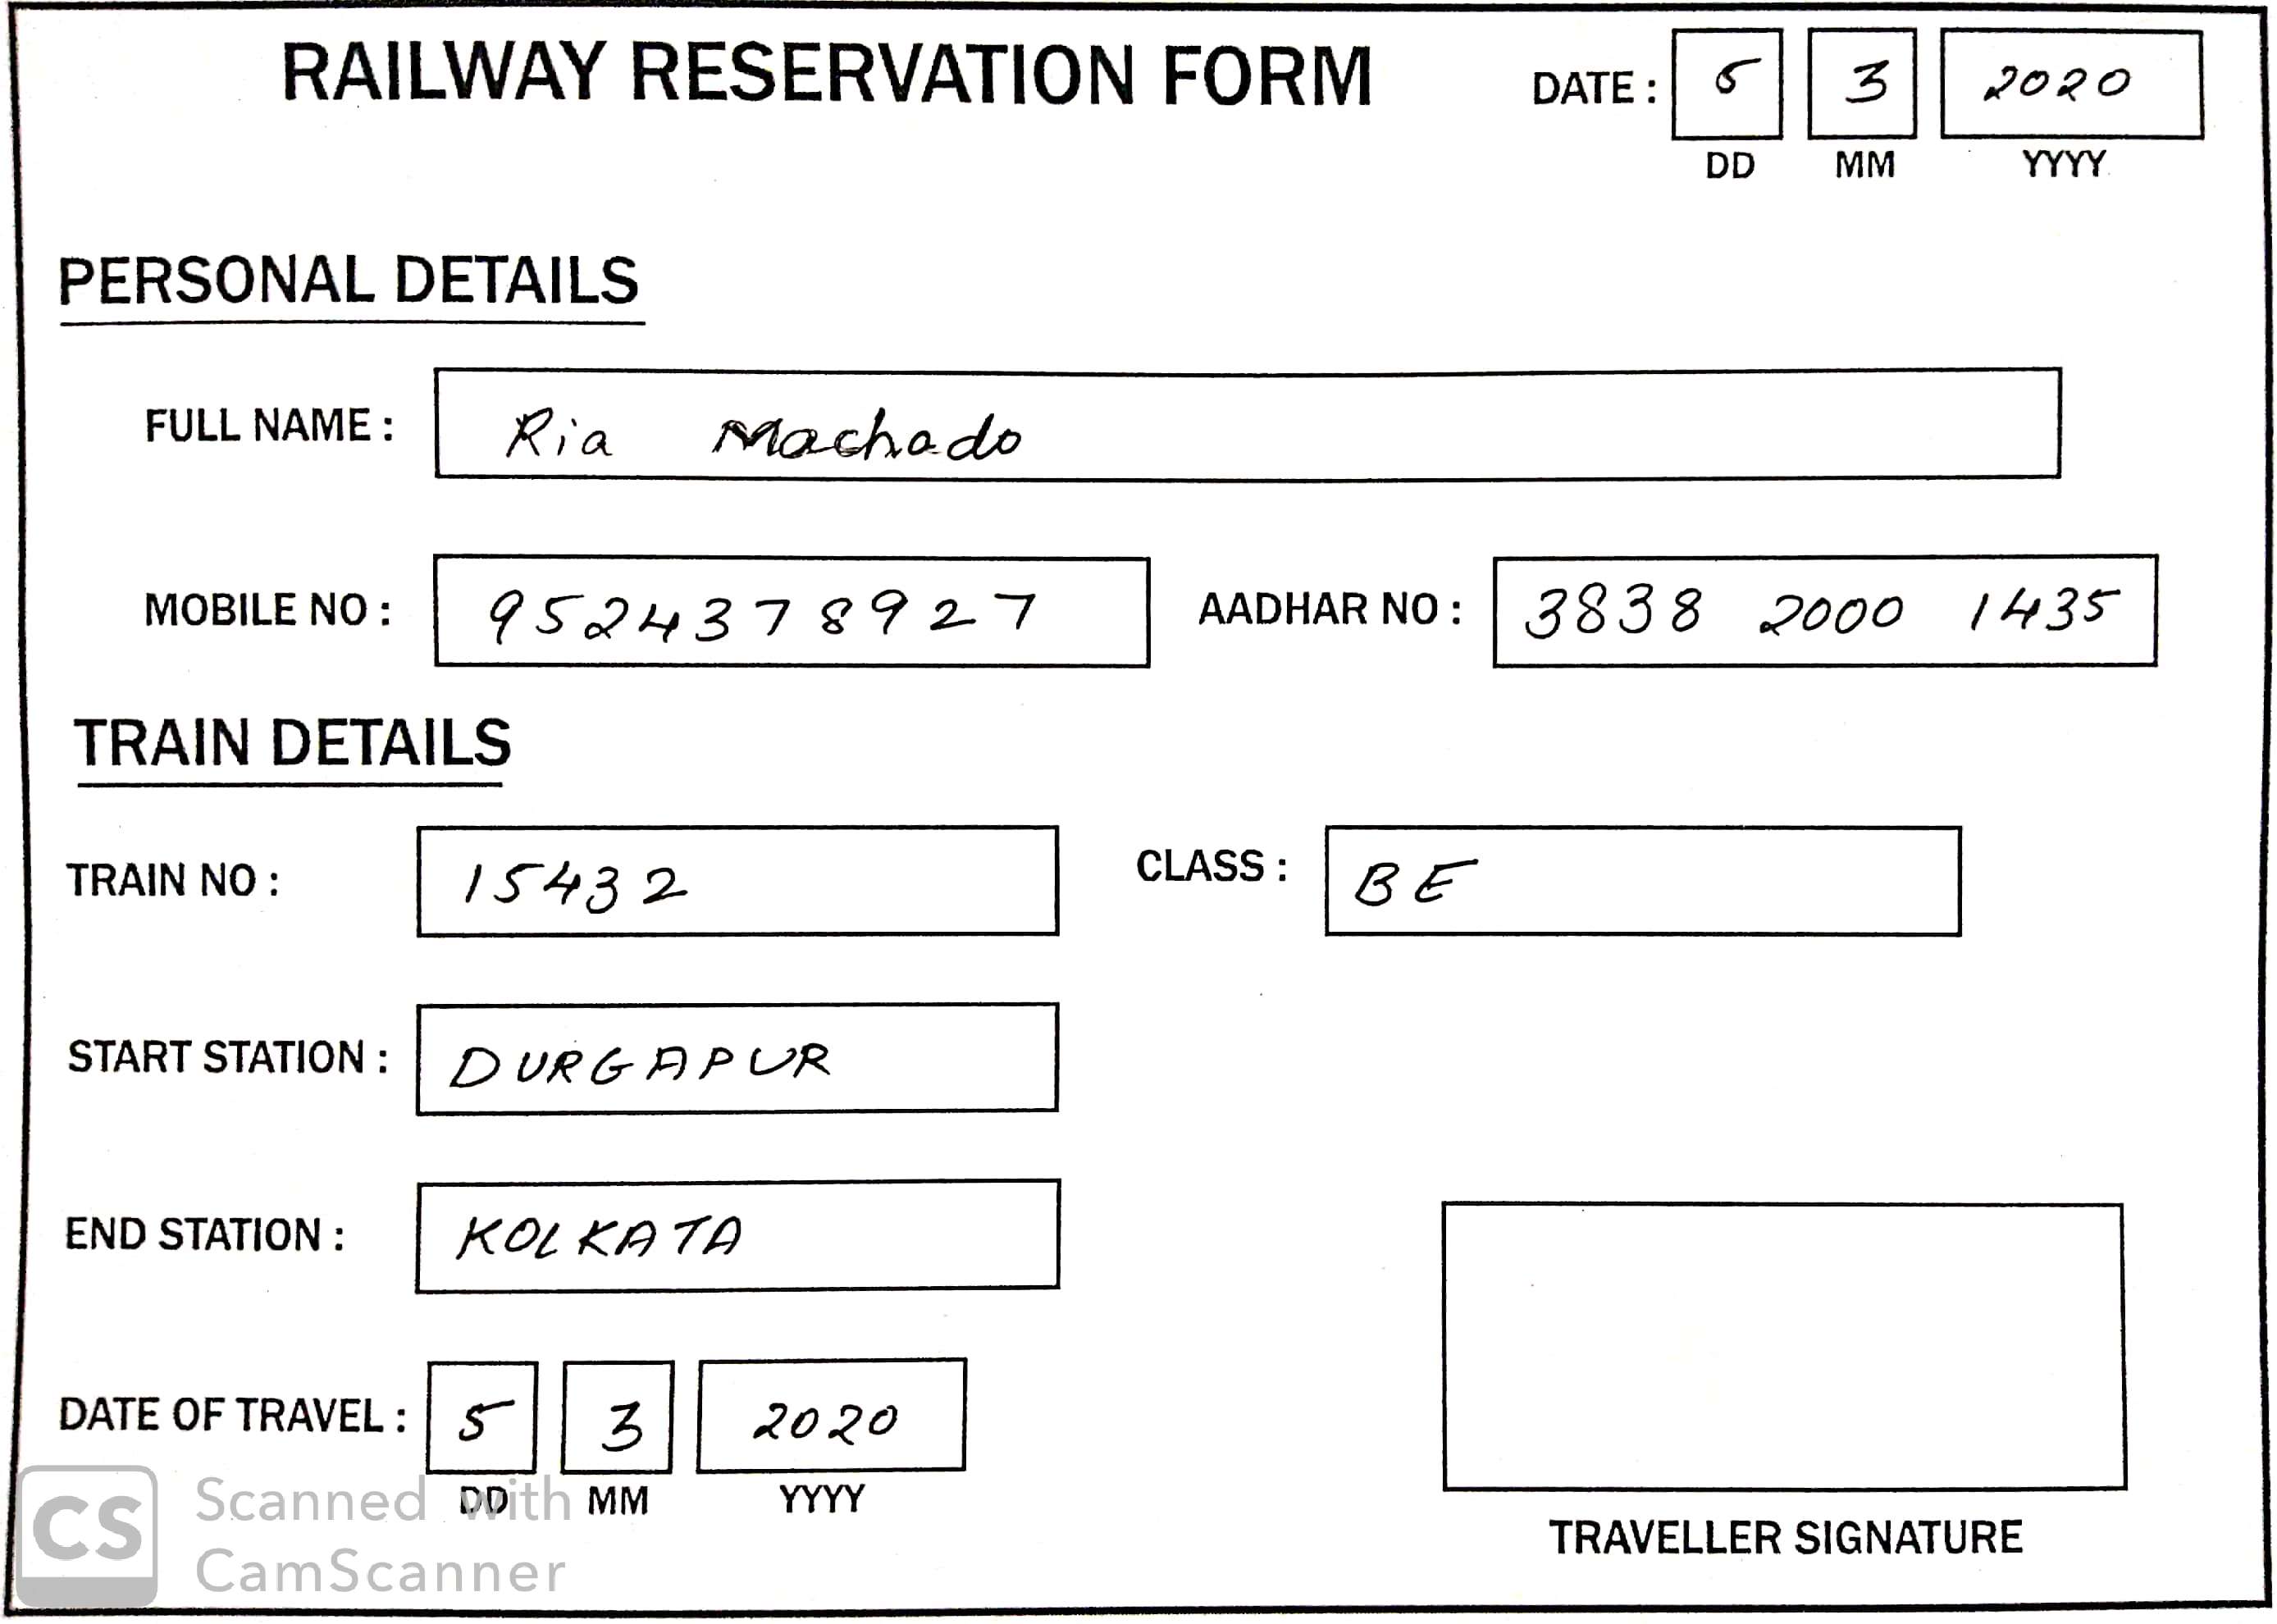 RAILWAY RESERVATION FORM DATE : 5 3 2020
DD MM YYYY
PERSONAL DETAILS
FULL NAME : Ria Machado
MOBILE NO : 9524378927 AADHAR NO : 3838 2000 1435
TRAIN DETAILS
TRAIN NO : 15432 CLASS : BE
START STATION : DURGAPUR
END STATION : KOLKATA
DATE OF TRAVEL : 5 3 2020
DD MM YYYY
TRAVELLER SIGNATURE
CS Scanned with
CamScanner